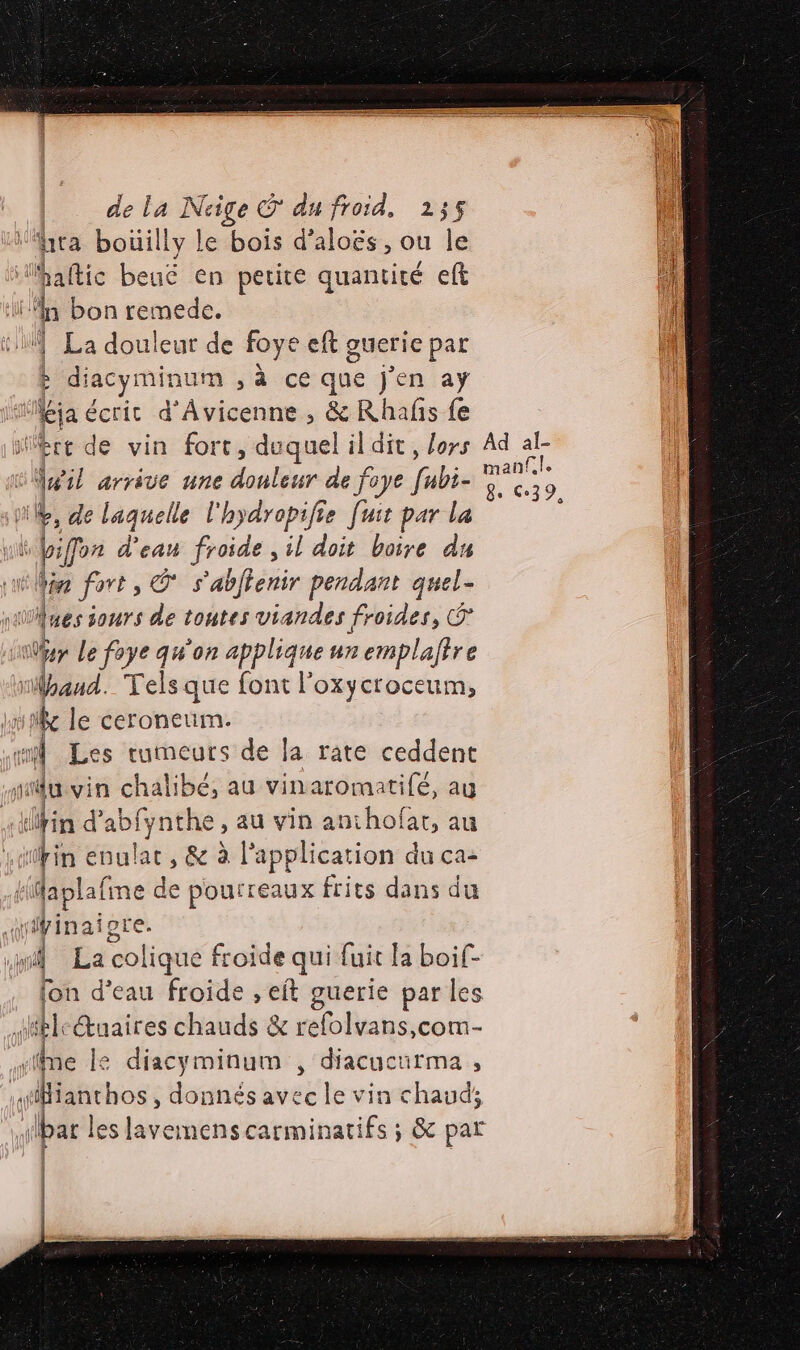 de la Neige & du froid. 235
boüilly le bois d'aloës, ou le
beuë en petite quantité eſt
bon remede.
La douleur de foye eſt guerie par
diacyminum, à ce que j'en ay
écrit d'Avicenne, & Rhaſis ſe
de vin fort, duquel il dit, lors
arrive une douleur de foye ſubi-
Ad al-
manſ. l.
9. c. 39.
de laquelle l'hydropiſie ſuit par la
d'eau froide, il doit boire du
fort, & s'abſtenir pendant quel-
iours de toutes viandes froides, &
le foye qu'on applique un emplaſtre
Tels que ſont l'oxycroceum,
le ceroneum.
Les tumeurs de la rate ceddent
vin chalibé, au vin aromatiſé, au
d'abſynthe, au vin anthoſat, au
enulat, & à l'application du ca-
de pourreaux frits dans du
La colique froide qui ſuit la boiſ-
ſon d'eau froide, eſt guerie par les
chauds & reſolvans, com-
le diacyminum, diacucurma,
donnés avec le vin chaud;
les lavemens carminatifs; & par